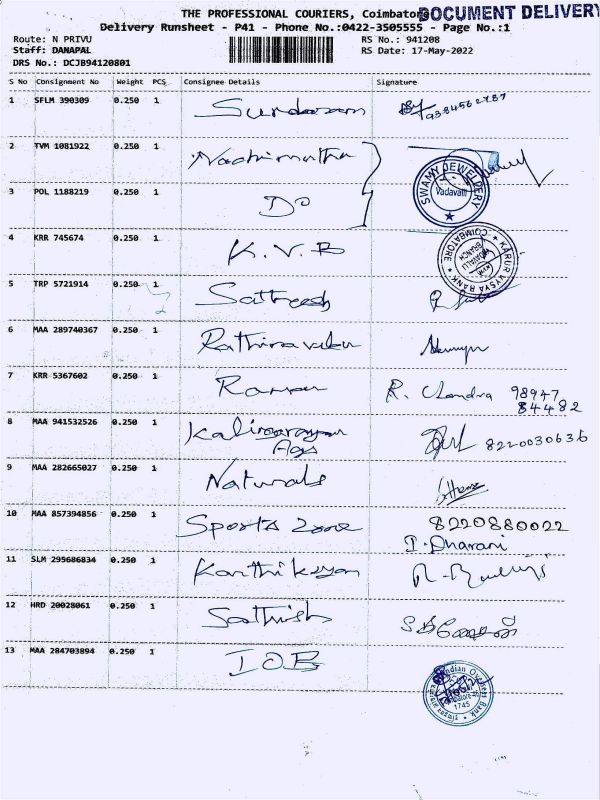 THE PROFESSIONAL COURIERS, Coimbatore
DOCUMENT DELIVERY
Delivery Runsheet - P41 - Phone No.:0422-3505555 - Page No.:1
Route: N PRIVU
RS No.: 941208
Staff: DANAPAL
RS Date: 17-May-2022
DRS No.: DCJB94120801
S No Consignment No Weight PCS Consignee Details Signature
1 SFLM 390309 0.250 1 Sundaram 9384562787
2 TVM 1081922 0.250 1 Nachimuthu
SWAMY JEWELLERY
Vadavalli
3 POL 1188219 0.250 1 Do
4 KRR 745674 0.250 1 K.V.B
KARUR VYSYA BANK
COIMBATORE
BRANCH
5 TRP 5721914 0.250 1 Satheesh
2
6 MAA 289740367 0.250 1 Rathinavelu
7 KRR 5367602 0.250 1 Raman R. Chandra 98947
84482
8 MAA 941532526 0.250 1 Kalingarayan 8220030636
Ags
9 MAA 282665027 0.250 1 Naturals
10 MAA 857394856 0.250 1 Sports Zone 8220880022
I. Dharani
11 SLM 295686834 0.250 1 Karthikeyan
12 HRD 20028061 0.250 1 Sathish
13 MAA 284703894 0.250 1 IOB
Indian Overseas Bank
1745